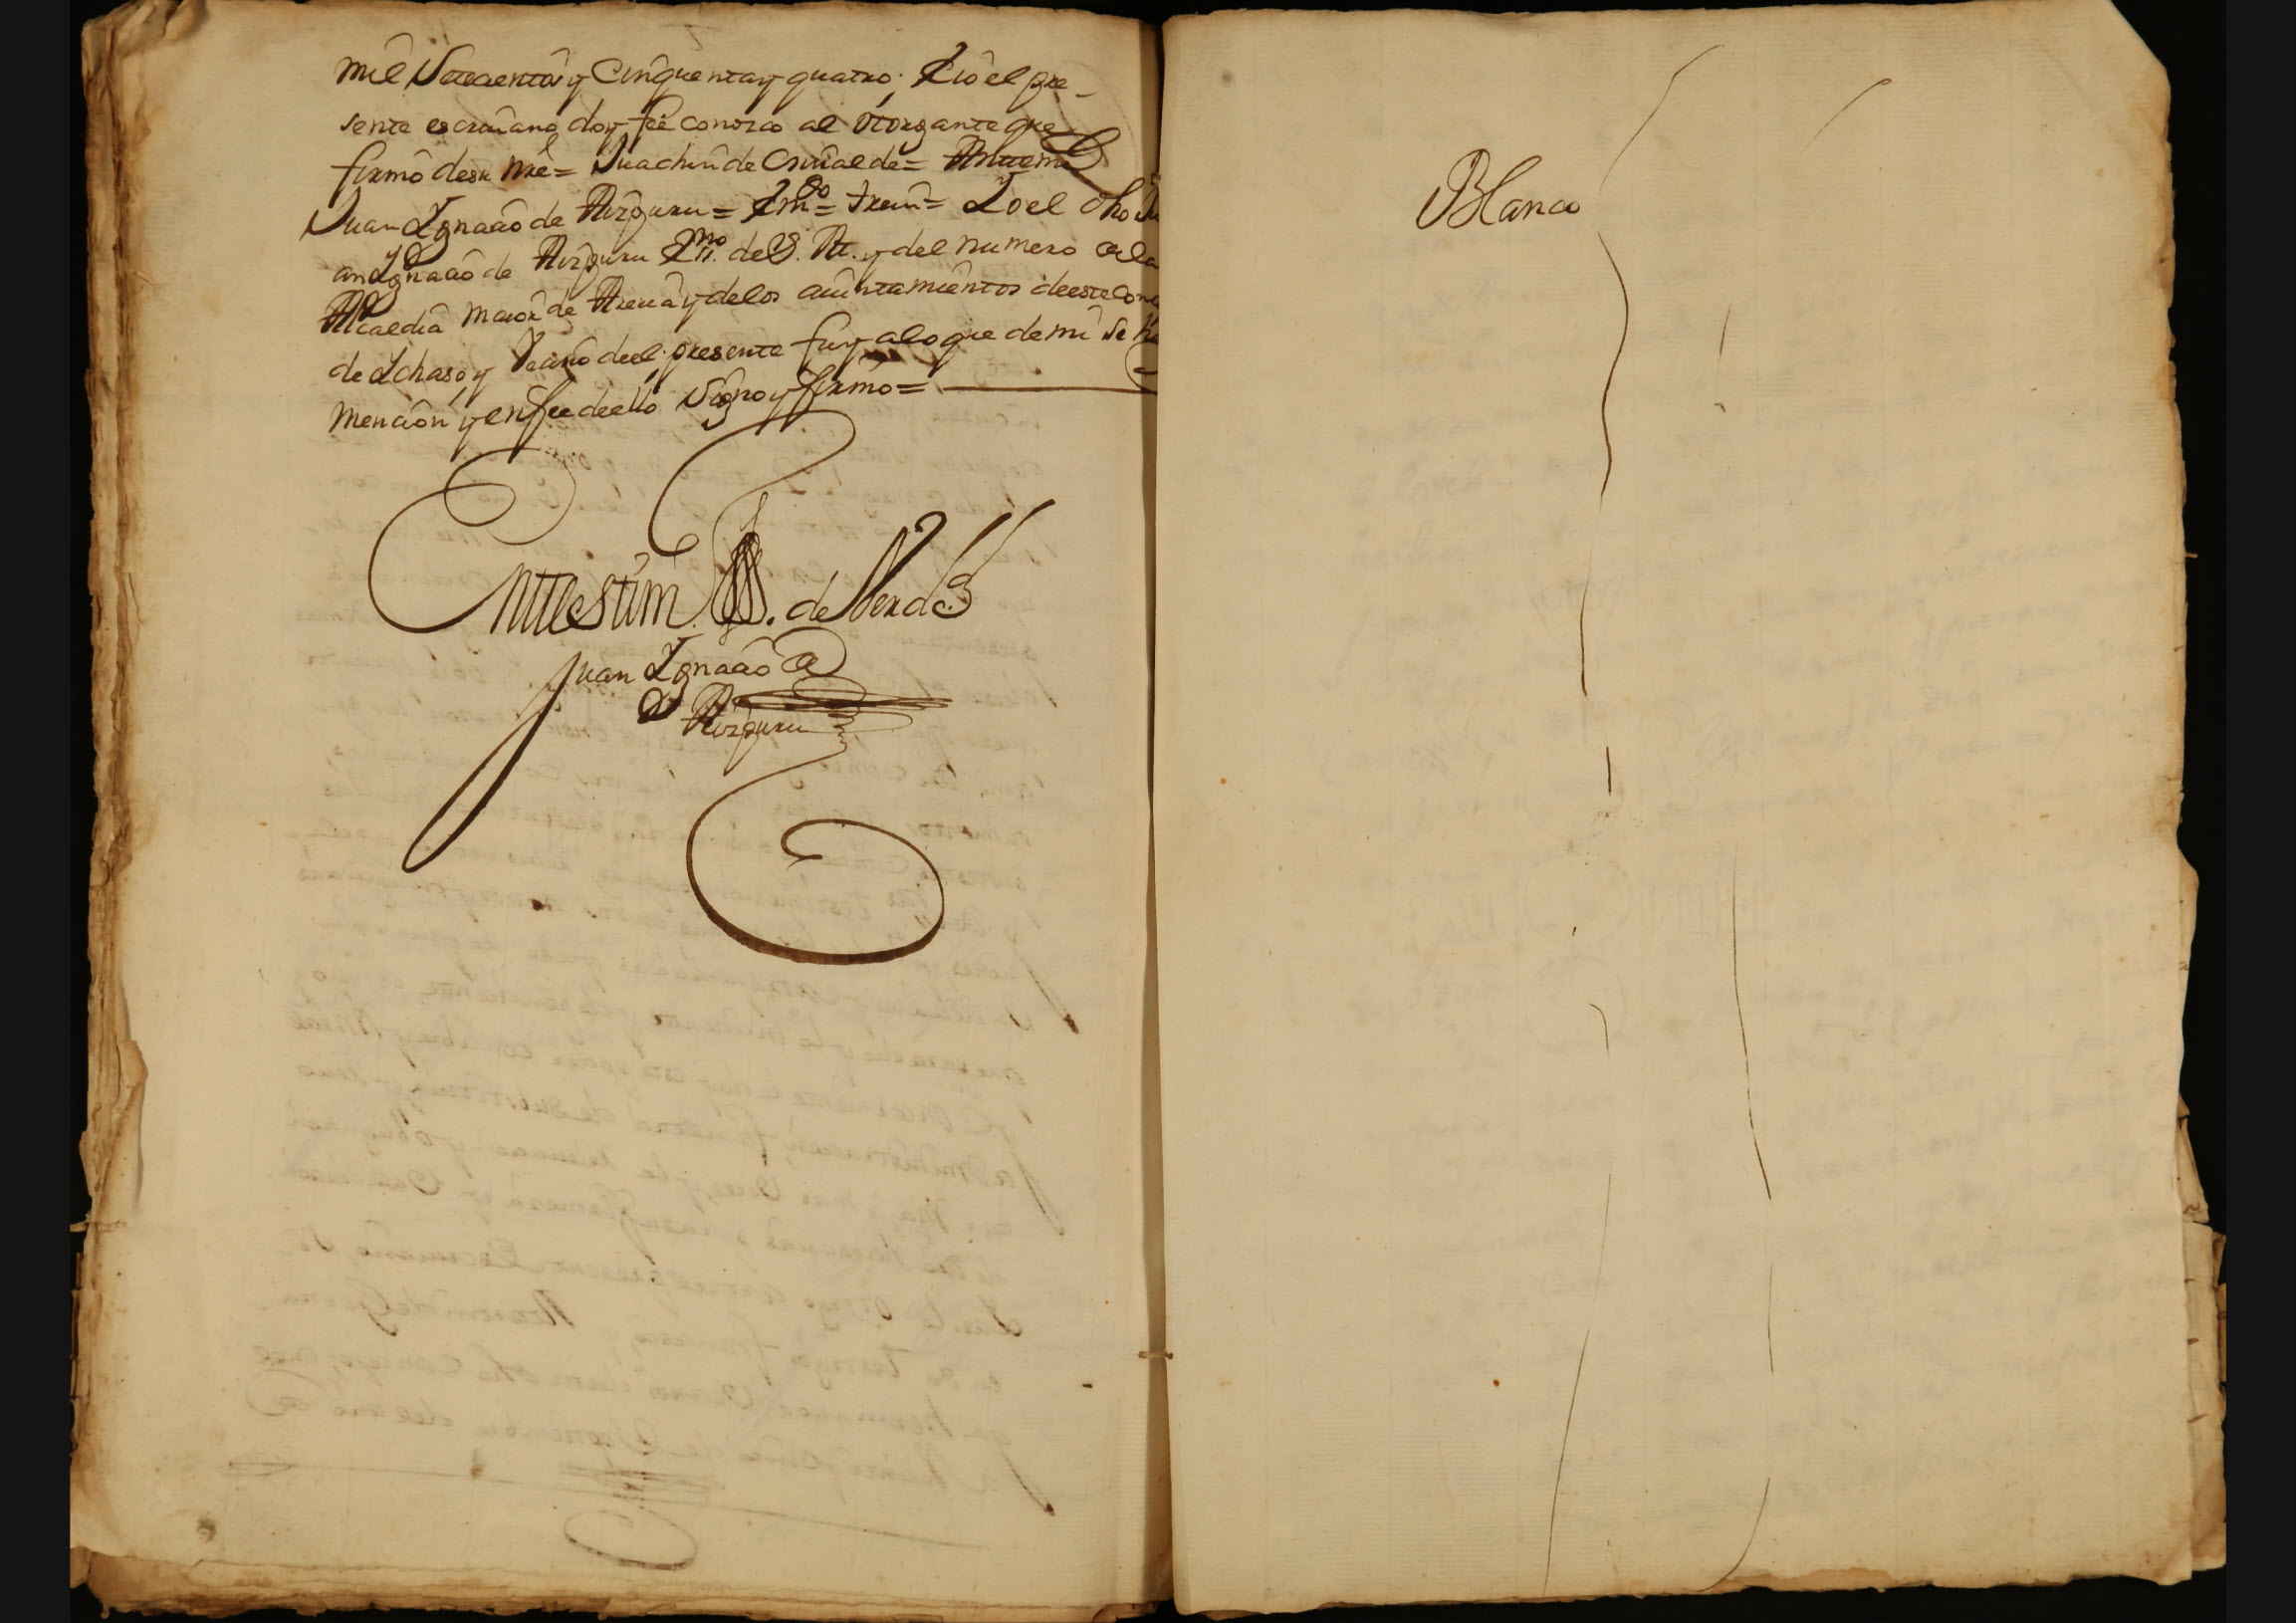 mil Setecientos y Cinquenta y quatro; E io el pre-
sente escriuano doy feê conozco al otorgante que
firmô de su nre = Juachin de Csuualde = Ante mi
Juan Ygnacio de Aizpuru = Em.do = treín = Yo el dho Ju
an Ygnacio de Aizpuru Es.no de S. M. y del numero de la
Alcaldia maior de Areria y de los aiuntamientos de este conc
de Ichaso y Vecino de el presente fuy a lo que de mi se ha
Mencion y en fee de ello Signo y firmo =
En testim. de Verd.
Juan Ygnacio
de Aizpuru
Blanco